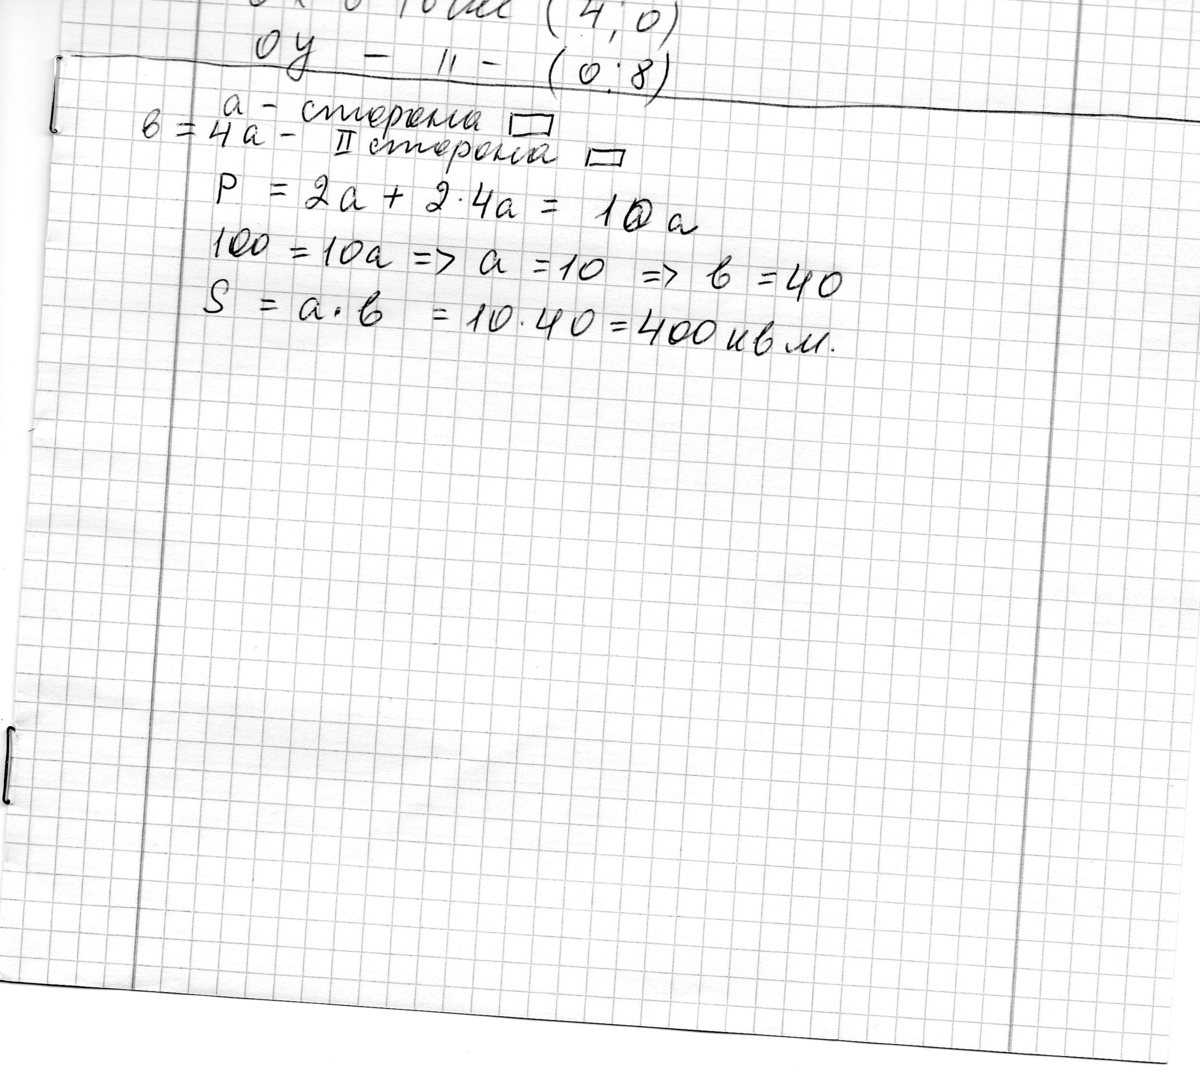 (4; 0)
OY - 11 - (0; 8)
a - сторона ▭
в = 4a - II сторона ▭
P = 2a + 2·4a = 10a
100 = 10a => a = 10 => в = 40
S = a·в = 10·40 = 400 кв м.